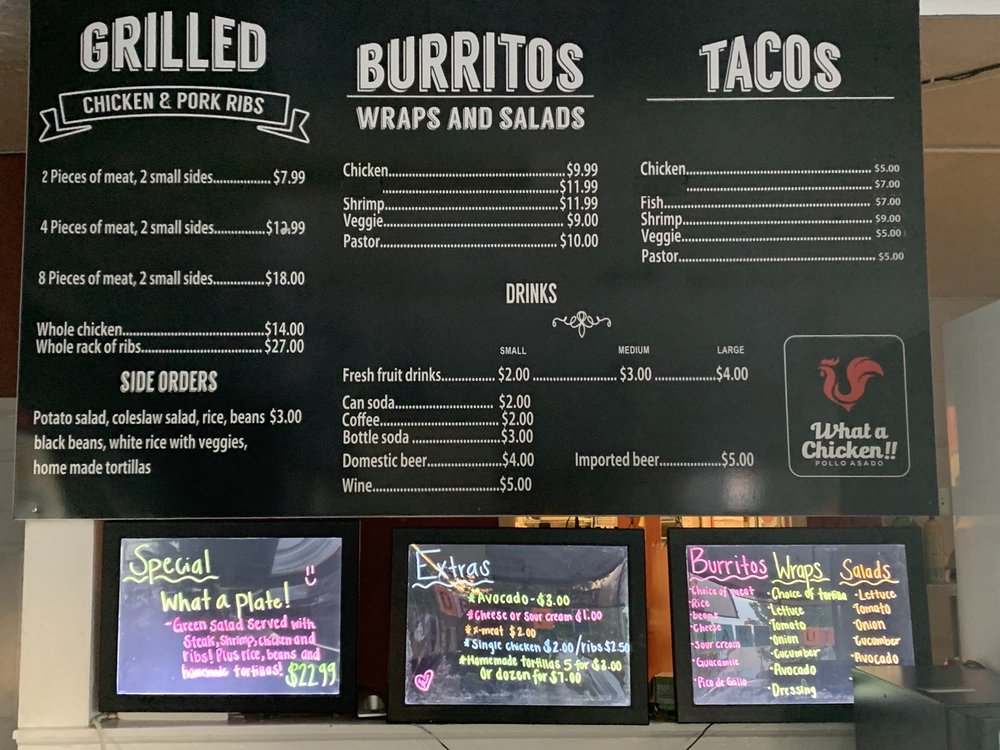 GRILLED
CHICKEN & PORK RIBS
2 Pieces of meat, 2 small sides............... $7.99
4 Pieces of meat, 2 small sides.............$12.99
8 Pieces of meat, 2 small sides.............$18.00
Whole chicken....................................$14.00
Whole rack of ribs............................... $27.00
SIDE ORDERS
Potato salad, coleslaw salad, rice, beans $3.00
black beans, white rice with veggies,
home made tortillas
BURRITOS
WRAPS AND SALADS
Chicken..............................................$9.99
$11.99
Shrimp...............................................$11.99
Veggie...............................................$9.00
Pastor............................................... $10.00
TACOS
Chicken............................................... $5.00
$7.00
Fish............................................... $7.00
Shrimp............................................... $9.00
Veggie............................................... $5.00
Pastor............................................... $5.00
DRINKS
SMALL MEDIUM LARGE
Fresh fruit drinks............. $2.00 ..................... $3.00 ............... $4.00
Can soda........................ $2.00
Coffee.............................$2.00
Bottle soda .....................$3.00
Domestic beer...................$4.00 Imported beer.................$5.00
Wine...............................$5.00
What a
Chicken!!
POLLO ASADO
Special
What a plate!
- Green Salad served with
Steak, Shrimp, chicken and
ribs! Plus rice, beans and
homemade tortillas! $22.99
Extras
* Avocado - $3.00
* Cheese or Sour cream $1.00
* X-meat $2.00
* Single chicken $2.00 / ribs $2.50
* Homemade tortillas 5 for $3.00
Or dozen for $7.00
Burritos
- Choice of meat
- Rice
- beans
- Cheese
- Sour cream
- Guacamole
- Pico de Gallo
Wraps
- Choice of tortilla
- Lettuce
- Tomato
- Onion
- Cucumber
- Avocado
- Dressing
Salads
- Lettuce
- Tomato
- Onion
- Cucumber
- Avocado